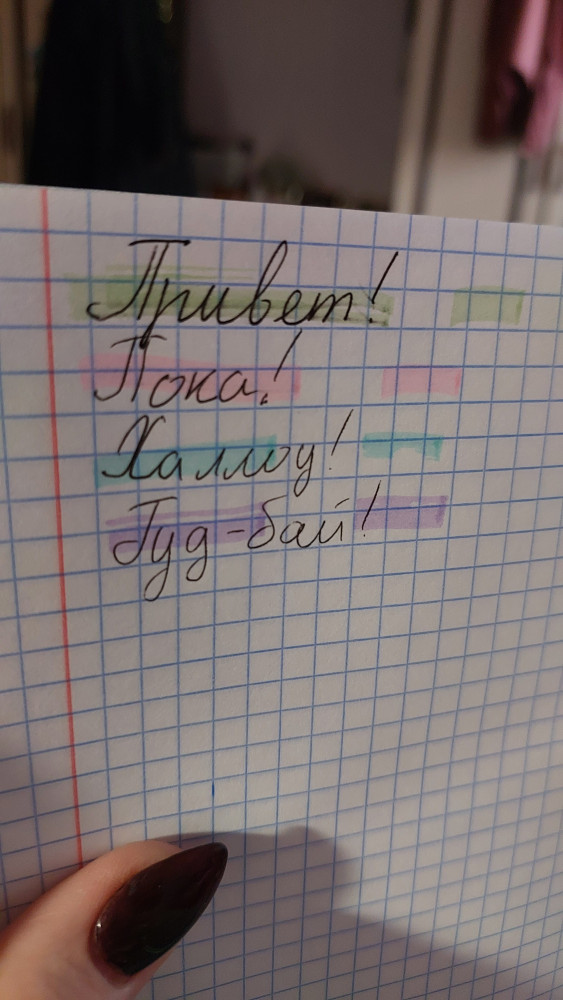 Привет!
Пока!
Халлоу!
Гуд-бай!